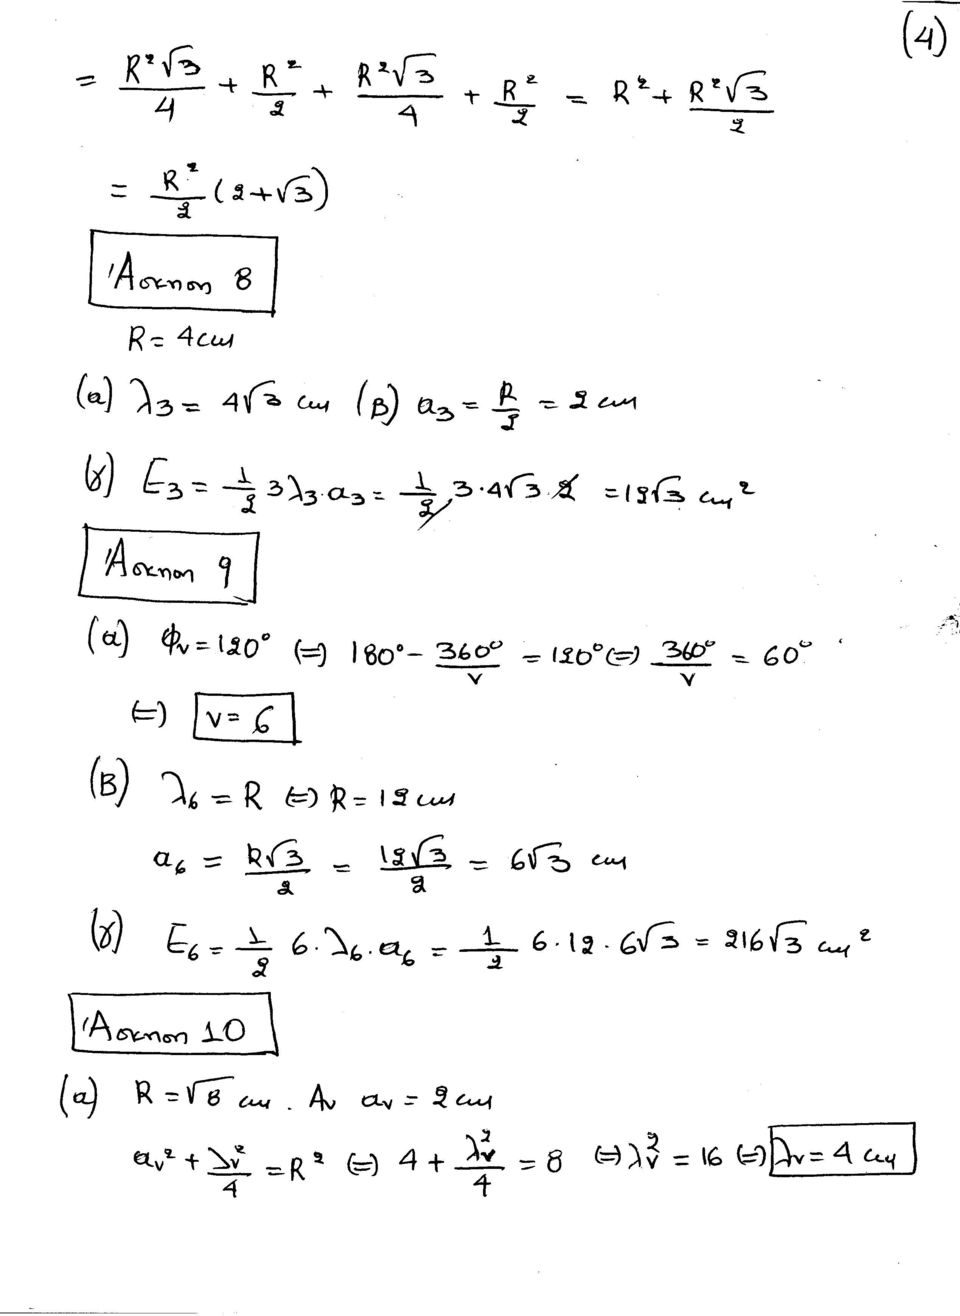 (4)
= R²√3/4 + R²/2 + R²√3/4 + R²/2 = R² + R²√3/2
= R²/2 (2+√3)
Άσκηση 8
R = 4cm
(α) λ₃ = 4√3 cm (β) α₃ = R/2 = 2 cm
(γ) E₃ = 1/2 3λ₃·α₃ = 1/2 3·4√3·2 = 12√3 cm²
Άσκηση 9
(α) φᵥ = 120° ⇔ 180° - 360°/ν = 120° ⇔ 360°/ν = 60°
⇔ ν = 6
(β) λ₆ = R ⇔ R = 12 cm
α₆ = R√3/2 = 12√3/2 = 6√3 cm
(γ) E₆ = 1/2 6·λ₆·α₆ = 1/2 6·12·6√3 = 216√3 cm²
Άσκηση 10
(α) R = √8 cm. Αν αᵥ = 2 cm
αᵥ² + λᵥ²/4 = R² ⇔ 4 + λᵥ²/4 = 8 ⇔ λᵥ² = 16 ⇔ λᵥ = 4 cm